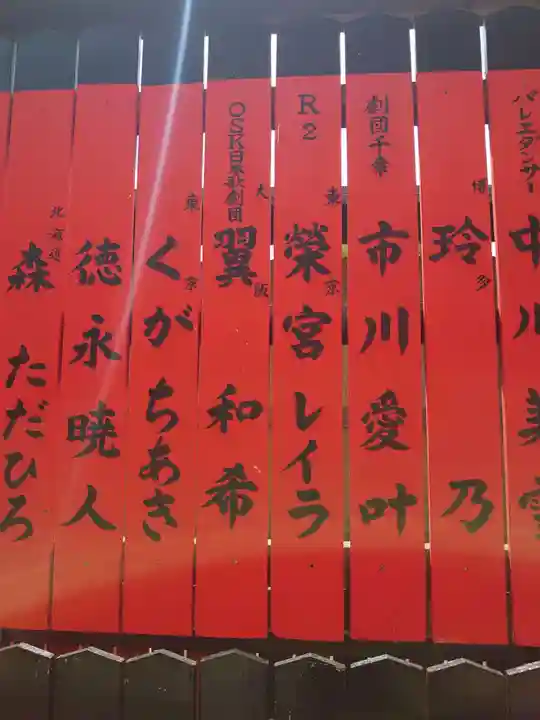 バレエダンサー
中川美雪
博多
玲乃
劇団千章
市川愛叶
R2
東京
榮宮レイラ
OSK日本歌劇団
大阪
翼和希
東京
くがちあき
徳永暁人
北海道
森ただひろ